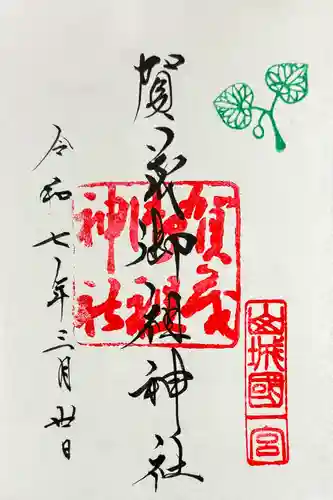 賀茂御祖神社
賀茂御祖神社
山城國一宮
令和七年三月廿日